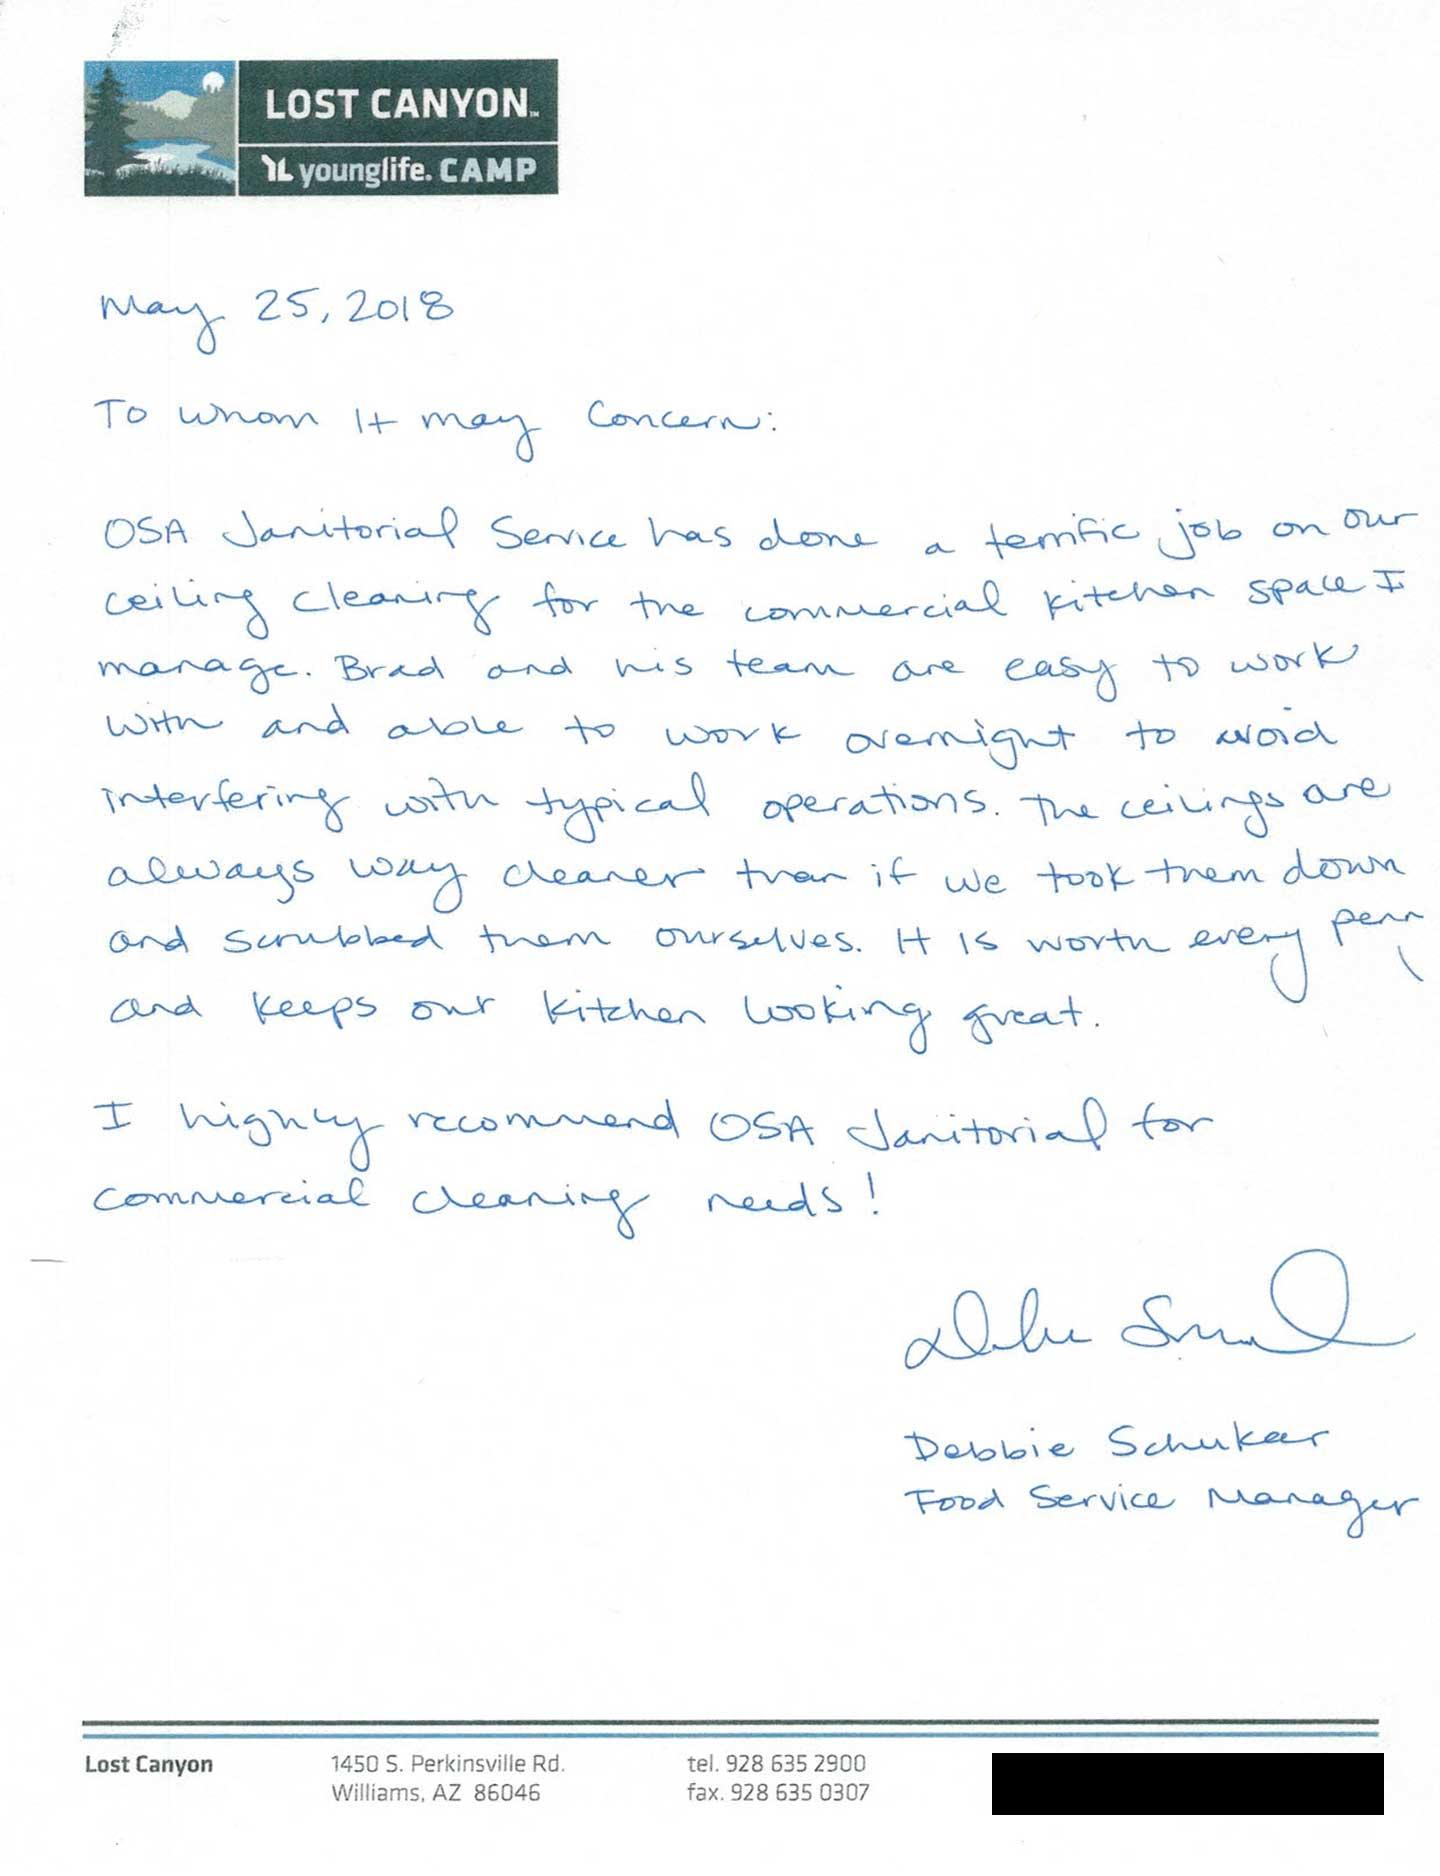 LOST CANYON™
younglife. CAMP
May 25, 2018
To Whom It may Concern:
OSA Janitorial Service has done a terrific job on our
ceiling cleaning for the commercial kitchen space I
manage. Brad and his team are easy to work
with and able to work overnight to avoid
interfering with typical operations. The ceilings are
always way cleaner than if we took them down
and scrubbed them ourselves. It is worth every penny
and keeps our kitchen looking great.
I highly recommend OSA Janitorial for
commercial cleaning needs!
Debbie Schukar
Food Service Manager
Lost Canyon 1450 S. Perkinsville Rd. tel. 928 635 2900
Williams, AZ 86046 fax. 928 635 0307